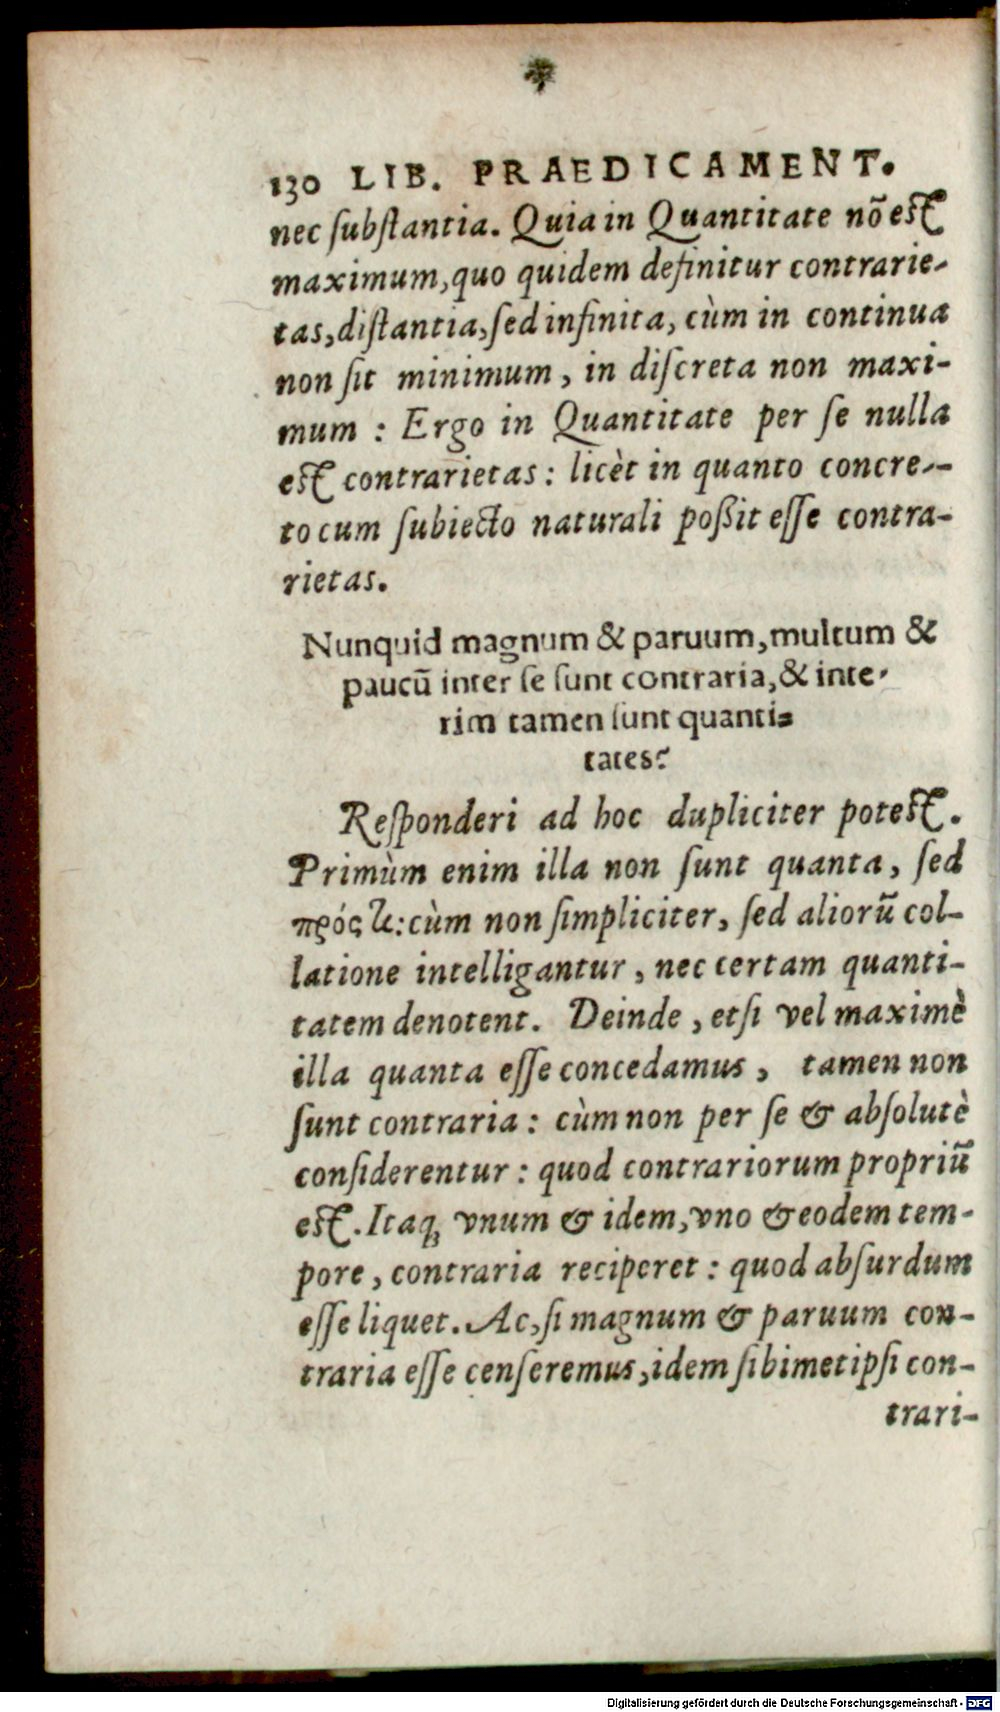 130 LIB. PRAEDICAMENT.
nec ſubſtantia. Quia in Quantitate nõ eſt
maximum, quo quidem definitur contrarie-
tas, diſtantia, ſed infinita, cùm in continua
non ſit minimum, in diſcreta non maxi-
mum : Ergo in Quantitate per ſe nulla
eſt contrarietas : licèt in quanto concre-
to cum ſubiecto naturali poßit eſſe contra-
rietas.
Nunquid magnum & paruum, multum &
paucũ inter ſe ſunt contraria, & inte-
rim tamen ſunt quanti-
tates?
Reſponderi ad hoc dupliciter poteſt.
Primùm enim illa non ſunt quanta, ſed
πρός τι: cùm non ſimpliciter, ſed aliorũ col-
latione intelligantur, nec certam quanti-
tatem denotent. Deinde, etſi vel maximè
illa quanta eſſe concedamus, tamen non
ſunt contraria : cùm non per ſe & abſolutè
conſiderentur : quod contrariorum propriũ
eſt. Itaq; vnum & idem, vno & eodem tem-
pore, contraria reciperet : quod abſurdum
eſſe liquet. Ac, ſi magnum & paruum con-
traria eſſe cenſeremus, idem ſibimetipſi con-
trari-
Digitalisierung gefördert durch die Deutsche Forschungsgemeinschaft - DFG